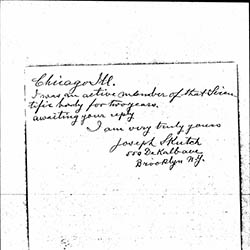 Chicago Ill.
I was an active member of that Scien
tific body for two years.
awaiting your reply
I am very truly yours
Joseph Skutch
500 DeKalb ave
Brooklyn N.Y.